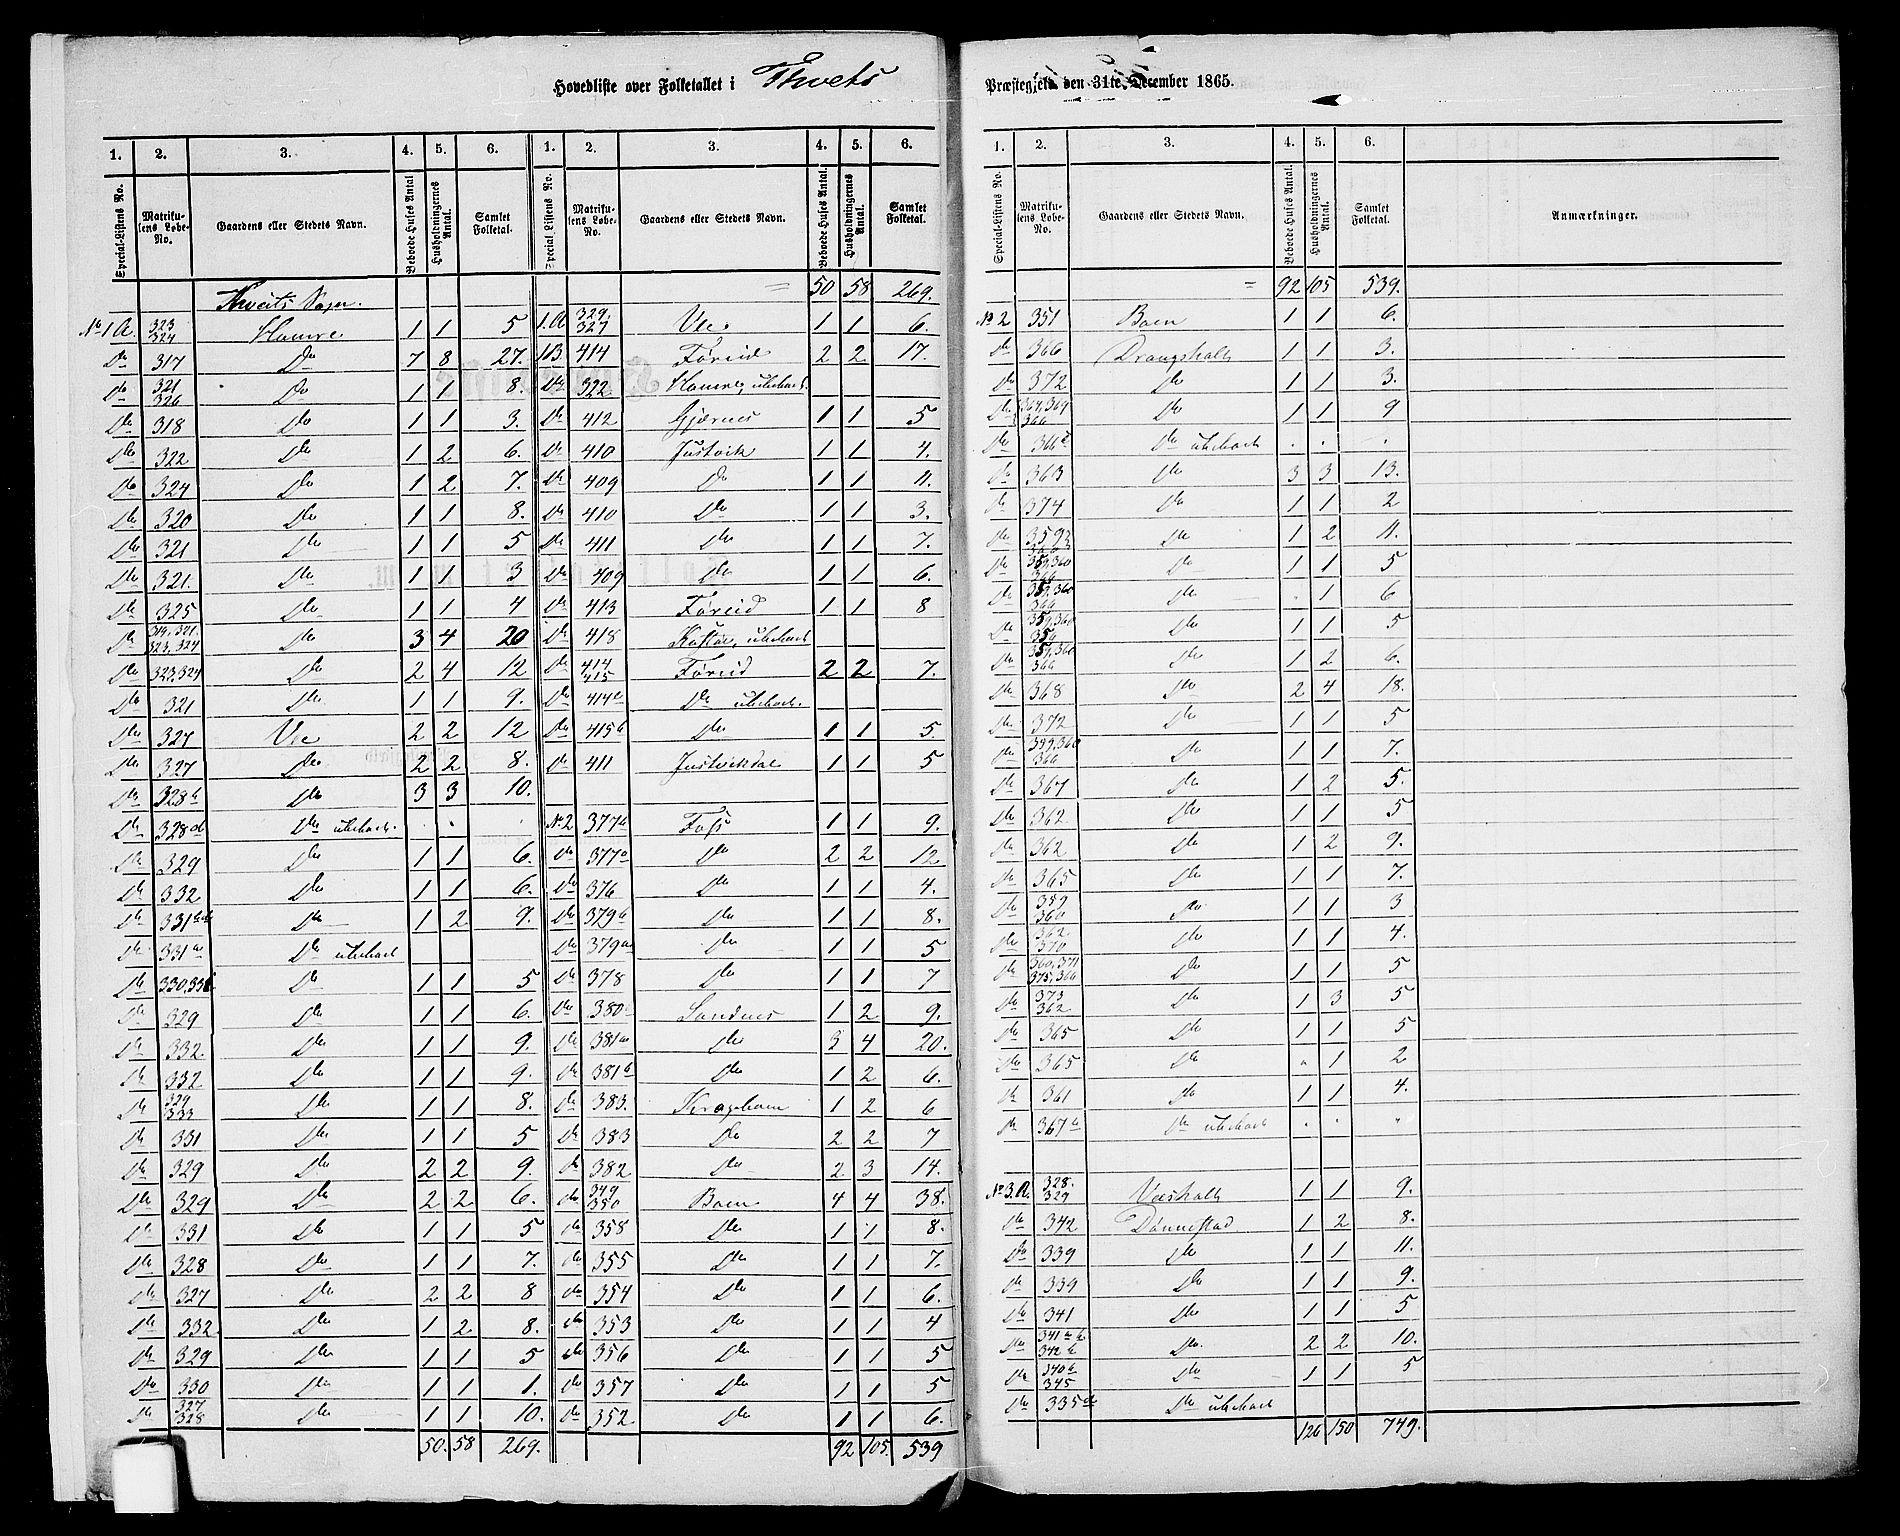 Hovedliste over Folketallet i Thveits Præstegjeld den 31te December 1865.
1. 2. 3. 4. 5. 6. 1. 2. 3. 4. 5. 6.
Special-Listens No. Matrikulens Løbe-No. Gaardens eller Stedets Navn. Beboede Huses Antal Husholdningernes Antal. Samlet Folketal. Special Listens No. Matrikulens Løbe-No. Gaardens eller Stedets Navn. Beboede Huses Antal. Husholdningernes Antal. Samlet Folketal.
Thveits Sogn.
No 1 A. 323 324 Hamre 1 1 5
Do 317 Do 7 8 27.
Do 321 326 Do 1 1 8.
Do 318 Do 1 1 3.
Do 322 Do 1 2 6.
Do 324 Do 1 2 7.
Do 320 Do 1 1 8.
Do 321 Do 1 1 5
Do 321. Do 1 1 3
Do 325 Do 1 1 4
Do 319, 321. 323, 324 Do 3 4 20
Do 323, 324 Do 2 4 12
Do 321 Do 1 1 9.
Do 327 Vee 2 2 12
Do 327 Do 2 2 8.
Do 328 b Do 3 3 10.
Do 328 Do ubeboet. . . .
Do 329 Do 1 1 6.
Do 332 Do 1 1 6.
Do 331 Do 1 2 9.
Do 331 a Do ubeboet
Do 330, 331 Do 1 1 5
Do 329 Do 1 1 6.
Do 332. Do 1 1 9.
Do 332 Do 1 1 9.
Do 329 333 Do 1 1 8.
Do 331 Do 1 1 5
Do 329 Do 2 2 9.
Do 329 Do 2 2 6.
Do 331 Do 1 1 5
Do 328 Do 1 1 7.
Do 327 Do 2 2 8
Do 332 Do 1 2 8.
Do 329 Do 1 1 5
Do 330 Do 1 1 1.
Do 327 328 Do 1 1 10.
50. 58 269.
50 58 269.
1. A 329, 327 Vee 1 1 6.
1 B 414 Føreid 2 2 17.
Do 322 Hamre, ubeboet.
Do 412 Gjærnes 1 1 5
Do 410 Justvik 1 1 4.
Do 409 Do 1 1 11.
Do 410 Do 1 1 3.
Do 411 Do 1 1 7.
Do 409 Do 1 1 6.
Do 413 Føreid 1 1 8
Do 418 ubeboet
Do 414 415 Føreid 2 2 7.
Do 414 Do ubeboet.
Do 415 b Do 1 1 5.
Do 411 Justvikdal 1 1 5
No 2 377 Foss 1 1 9.
Do 377 Do 2 2 12
Do 376 Do 1 1 4.
Do 379 b Do 1 1 8.
Do 379 a Do 1 1 5
Do 378 Do 1 1 7
Do 380 Sandnes 1 2 9.
Do 381 a Do 3 4 20.
Do 381 b Do 1 2 6.
Do 383. Krageboen 1 2 6
Do 383 Do 2 2 7
Do 382 Do 2 3 14.
Do 349 350 Boen 4 4 38.
Do 358 Do 1 1 8.
Do 355 Do 1 1 7.
Do 354 Do 1 1 6.
Do 353 Do 1 1 4
Do 356 Do 1 1 5
Do 357 Do 1 1 5
Do 352 Do 1 1 6.
92 105. 539
1. 2. 3. 4. 5. 6.
Special-Listens No. Matrikulens Løbe-No. Gaardens eller Stedets Navn. Beboede Huses Antal. Husholdningernes Antal. Samlet Folketal. Anmærkninger.
92 105 539.
No 2 351 Boen 1 1 6.
Do 366 Drangsholt 1 1 3.
Do 372 Do 1 1 3.
Do 364, 369 366 Do 1 1 9
Do 366 Do ubeboet . . .
Do 363 Do 3 3 13.
Do 374 Do 1 1 2
Do 359 366 Do 1 2 11.
Do 359, 360 366 Do 1 1 5
Do 359, 360 366 Do 1 6
Do 359, 360 Do 1 1 5
Do 359, 360 366 Do 1 2 6.
Do 368 Do 2 4 18.
Do 372 Do 1 1 5
Do 359, 360 366 Do 1 1 7.
Do 367 Do 1 2 5.
Do 362 Do 1 1 5
Do 362 Do 1 2 9.
Do 365 Do 1 1 7.
Do 359 360 Do 1 1 3
Do 362. 370 Do 1 1 4.
Do 360, 371 375, 366 Do 1 1 5
Do 373 362 Do 1 3 5
Do 365 Do 1 1 5
Do 365 Do " 1 2
Do 361 Do 1 1 4.
Do 367 Do ubeboet . . "
No 3. A. 328. 329 Væsholt 1 1 9.
Do 342 Dønnestad 1 2 8.
Do 339 Do 1 1 11.
Do 339 Do 1 1 9.
Do 341 Do 1 1 5
Do 341 342 Do. 2 2 10.
Do 340 345 Do 1 1 5
Do 335 Do ubeboet
126 150 749.